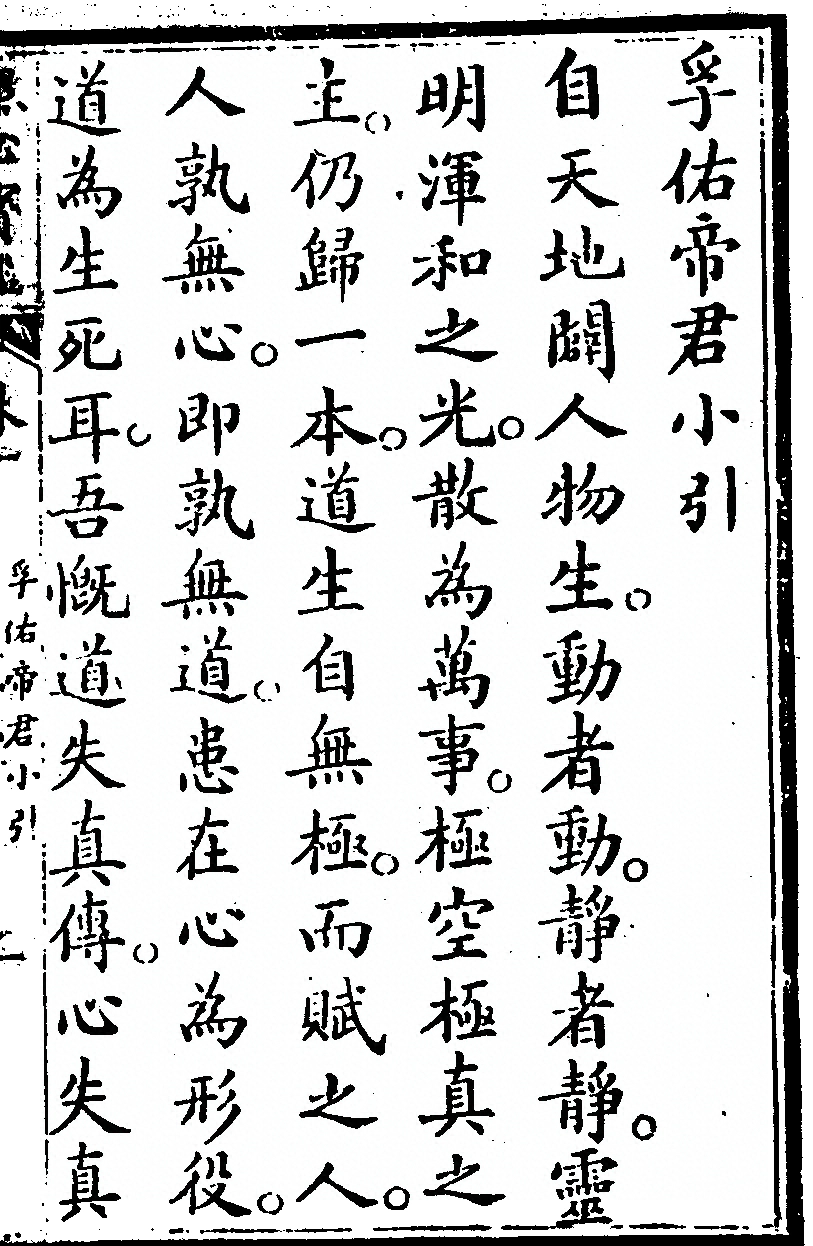 孚佑帝君小引
自天地闢人物生。動者動。靜者靜。靈
明渾和之光。散為萬事。極空極真之
主。仍歸一本。道生自無極。而賦之人。
人孰無心。即孰無道。患在心為形役。
道為生死耳。吾慨道失真傳。心失真
孚佑帝君小引